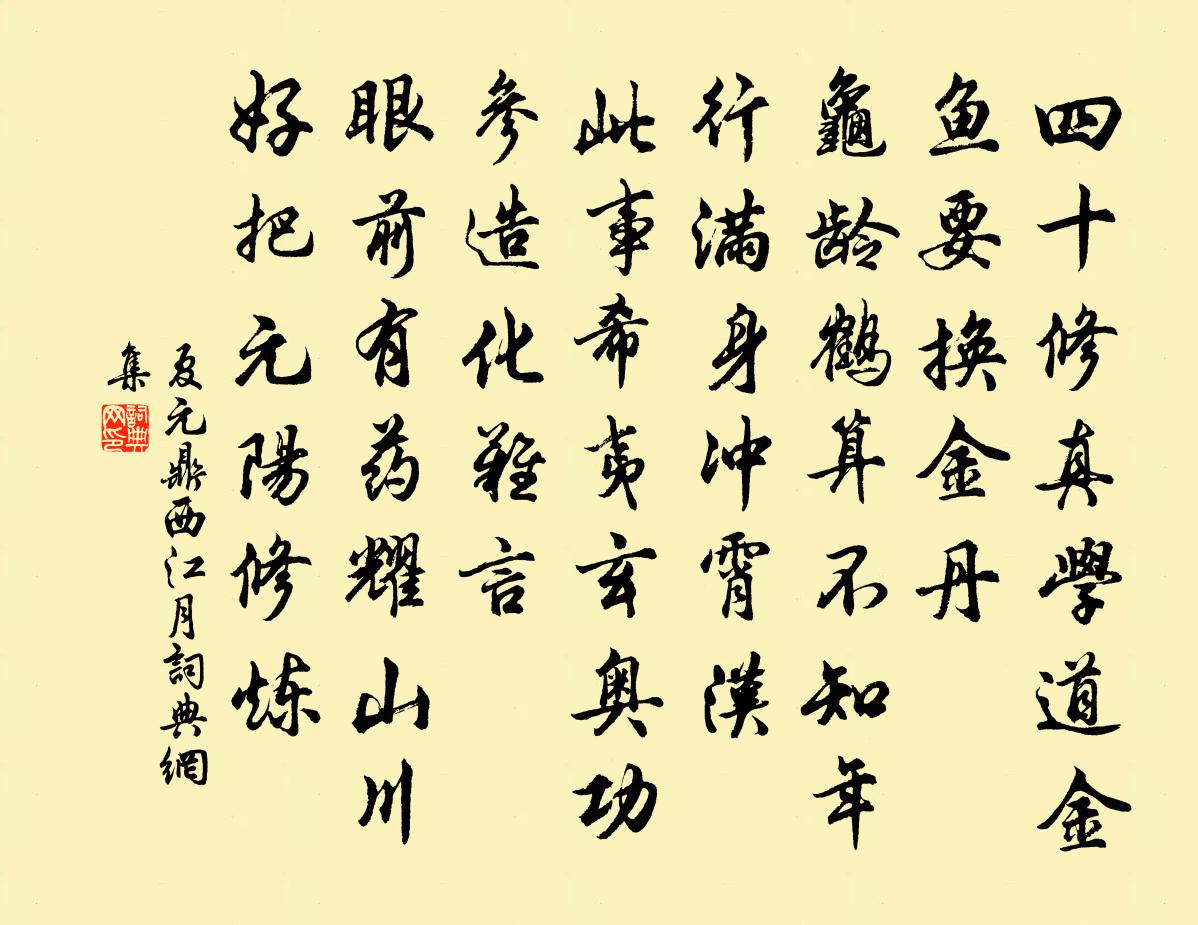 四十修真學道金
鱼要换金丹
龜龄鶴算不知年
行滿身冲霄漢
此事希夷玄奥功
參造化難言
眼前有药耀山川
好把元陽修炼
夏元鼎西江月詞典網
集
詞典
网印